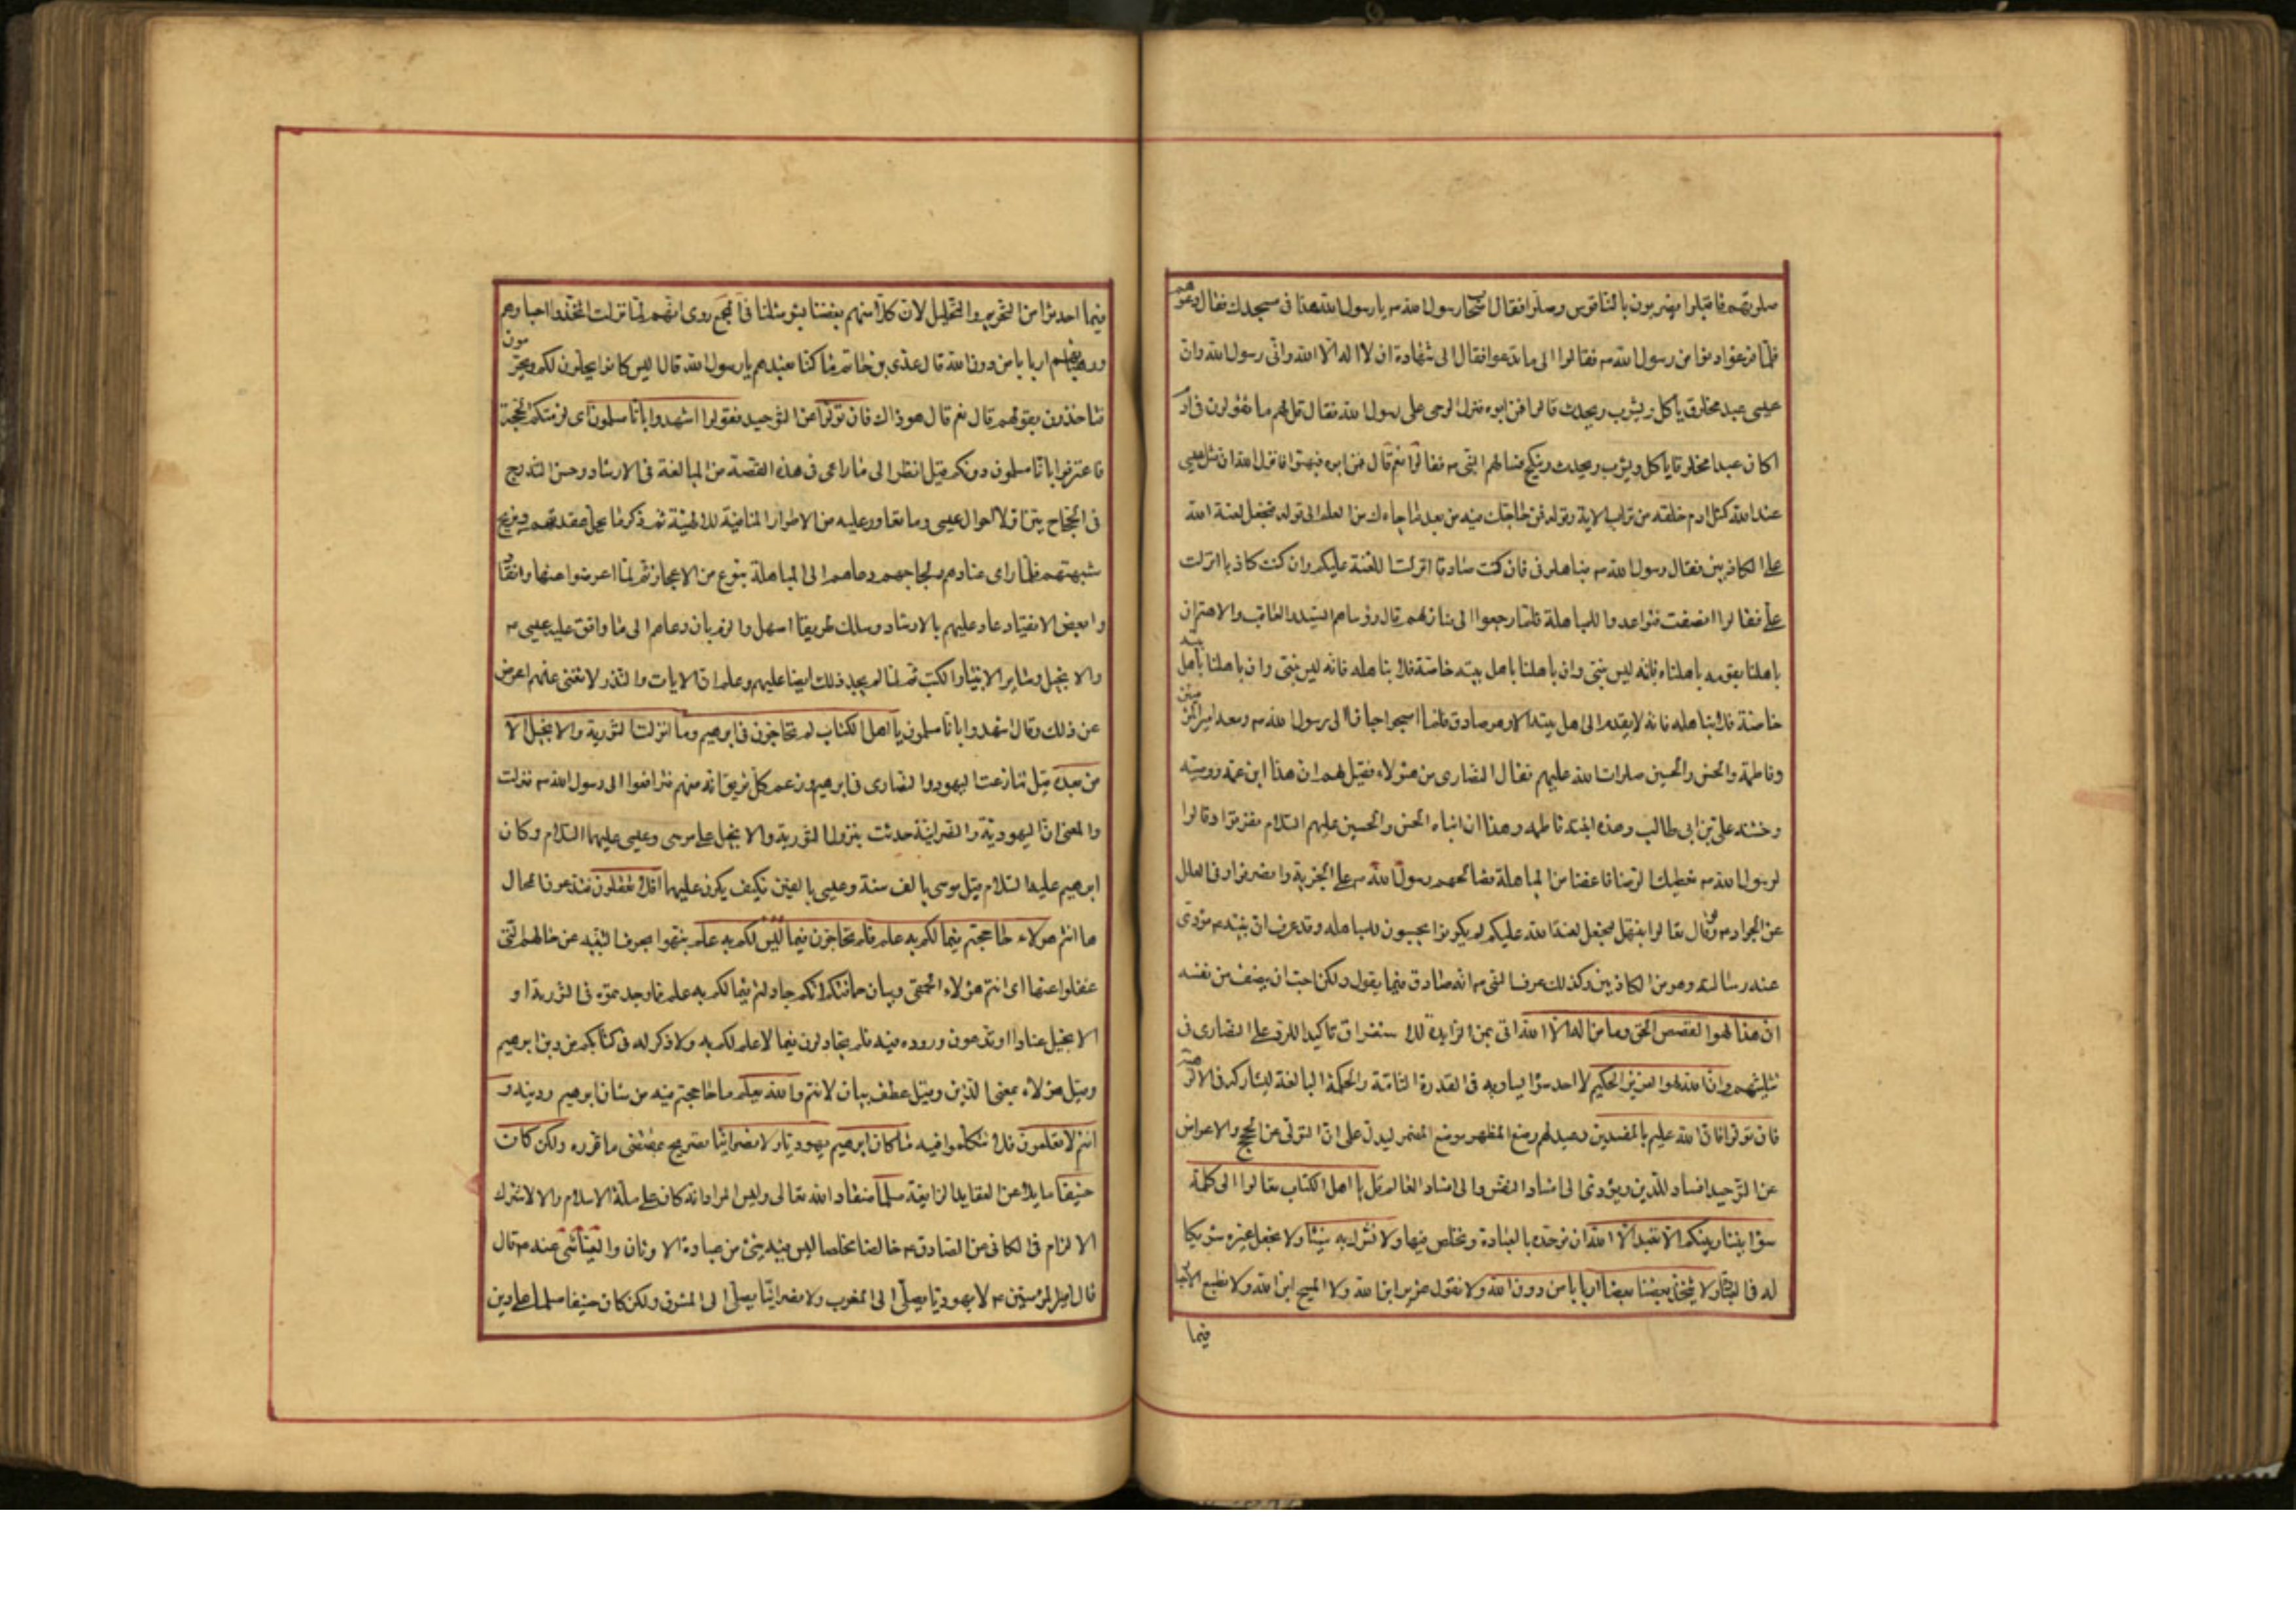 صلوتهم فاقبلوا يضربون بالناقوس وصلوا فقال اصحاب رسول الله ص يا رسول الله هذا فى مسجدك فقال دعوهم
فلما فرغوا دنوا من رسول الله ص فقالوا الى ما تدعوا فقال الى شهادة ان لا اله الا الله وانى رسول الله وان
عيسى عبد مخلوق ياكل ويشرب ويحدث قالوا فمن ابوه فنزل الوحى على رسول الله فقال قل لهم ما تقولون فى ادم
اكان عبدا مخلوقا ياكل ويشرب ويحدث وينكح فسالهم النبى ص فقالوا نعم قال فمن ابوه فبهتوا فانزل الله ان مثل عيسى
عند الله كمثل ادم خلقه من تراب الاية وقوله فمن حاجك فيه من بعد ما جاءك من العلم الى قوله فنجعل لعنة الله
على الكاذبين فقال رسول الله ص فباهلونى فان كنت صادقا انزلت اللعنة عليكم وان كنت كاذبا انزلت
على فقالوا انصفت فتواعدوا للمباهلة فلما رجعوا الى منازلهم قال رؤساهم السيد والعاقب والاهتم ان
باهلنا بقومه باهلناه فانه ليس بنبى وان باهلنا باهل بيته خاصة فلا نباهله فانه ليس بنبى وان باهلنا باهل بيته
خاصة فلا نباهله فانه لا يقدم الى اهل بيته الا وهو صادق فلما اصبحوا جاؤا الى رسول الله ص ومعه امير المؤمنين
وفاطمة والحسن والحسين صلوات الله عليهم فقال النصارى من هؤلاء فقيل لهم ان هذا ابن عمه ووصيه
وختنه على بن ابى طالب وهذه ابنته فاطمه وهذا ان ابناه الحسن والحسين عليهم السلام ففرقوا وقالوا
لرسول الله ص نعطيك الرضا فاعفنا من المباهلة فصالحهم رسول الله ص على الجزية وانصرفوا وفى العلل
عن الجواد ص قال تعالوا نبتهل فنجعل لعنة الله عليكم لم يكونوا يجيبون للمباهله وقد عرف ان نبيه ص مؤدى
عنه رسالته وهو من الكاذبين وكذلك عرف النبى ص انه صادق فيما يقول ولكن احب ان ينصف من نفسه
ان هذا لهو القصص الحق وما من اله الا الله اتى بمن الزايدة للاستغراق تاكيدا للرد على النصارى فى
تثليثهم وان الله لهو العزيز الحكيم لا احد سؤا يساويه فى القدرة التامة والحكمة البالغة ليشاركه فى الالوهية
فان تولوا فان الله عليم بالمفسدين وعيد لهم وضع المظهر موضع المضمر ليدل على ان التولى عن الحجج والاعراض
عن التوحيد افساد للدين ويؤدى الى افساد النفس والى افساد العالم قل يا اهل الكتاب تعالوا الى كلمة
سؤا بيننا وبينكم الا نعبد الا الله ان نوحده بالعبادة ونخلص فيها ولا نشرك به شيئا ولا نجعل غيره شريكا
له فى العبادة ولا يتخذ بعضنا بعضا اربابا من دون الله ولا نقول عزير ابن الله ولا المسيح ابن الله ولا نطيع الاحبار
فيما
فيما احدثوا من التحريم والتحليل لان كلا منهم بعضنا بشر مثلنا فى المجمع روى انهم لما نزلت اتخذوا احبارهم
ورهبانهم اربابا من دون الله قال عدى بن حاتم ما كنا نعبدهم يا رسول الله قال اليس كانوا يحلون لكم ويحرمون
فتاخذون بقولهم قال نعم قال هو ذاك فان تولوا عن التوحيد فقولوا اشهدوا بانا مسلمون اى لزمتكم الحجة
فاعترفوا بانا مسلمون دونكم قيل انظر الى ما راعى فى هذه القصة من المبالغة فى الارشاد وحسن التدرج
فى الحجاج بين اولا احوال عيسى وما تعاور عليه من الاطوار المنافية للالهية ثم ذكر ما يحل عقدتهم ويزيح
شبهتهم فلما راى عنادهم ولجاجهم دعاهم الى المباهلة بنوع من الاعجاز ثم لما اعرضوا عنها وانقا
دوا بعض الانقياد عاد عليهم بالارشاد وسلك طريقا اسهل والزم بان دعاهم الى ما وافق عليه عيسى ع
والانجيل وساير الانبياء والكتب ثم لما لم يجد ذلك ايضا عليهم وعلم ان الايات والنذر لا تغنى عنهم اعرض
عن ذلك وقال اشهدوا بانا مسلمون يا اهل الكتاب لم تحاجون فى ابرهيم وما انزلت التورية والانجيل الا
من بعده قيل تنازعت اليهود والنصارى فى ابرهيم وزعم كل فريق انه منهم فترافعوا الى رسول الله ص فنزلت
والمعنى ان اليهودية والنصرانية حدثت بنزول التورية والانجيل على موسى وعيسى عليهما السلام وكان
ابرهيم عليه السلام قبل موسى بالف سنة وعيسى بالفين فكيف يكون عليهما افلا تعقلون فتدعون المحال
ها انتم هؤلاء حاججتم فيما لكم به علم فلم تحاجون فيما ليس لكم به علم نبهوا بحرف التنبيه عن حالهم التى
غفلوا عنها اى انتم هؤلاء الحمقى وبيان حماقتكم انكم جادلتم فيما لكم به علم مما وجدتموه فى التورية او
الانجيل عنادا او تدعون وروده فيه فلم تجادلون فيما لا علم لكم به ولا ذكر له فى كتابكم من دين ابرهيم
وقيل هؤلاء بمعنى الذين وقيل عطف بيان لانتم والله يعلم ما حاججتم فيه من شان ابرهيم ودينه و
انتم لا تعلمون فلا تتكلموا فيه ما كان ابرهيم يهوديا ولا نصرانيا تصريح بمقتضى ما قرره ولكن كان
حنيفا مايلا عن العقايد الزايغة مسلما منقادا لله تعالى وليس المراد انه كان على ملة الاسلام والا لاشترك
الالزام فى الكافى عن الصادق ع خالصا مخلصا ليس فيه شئ من عبادة الاوثان والعياشى عنه ع قال
قال امير المؤمنين ع لا يهوديا يصلى الى المغرب ولا نصرانيا يصلى الى المشرق ولكن كان حنيفا مسلما على دين